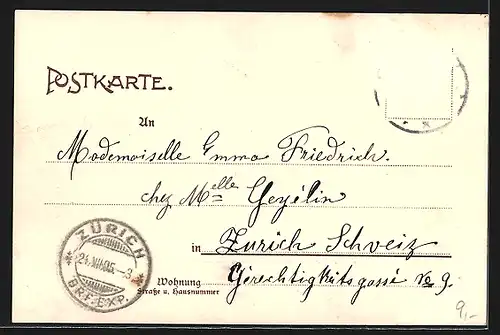 POSTKARTE.
An
Mademoiselle Emma Friedrich.
chez Melle Geyélin
in Zurich Schweiz
Wohnung
Straße u. Hausnummer
Gerechtigkeitsgasse No 9.
* ZÜRICH *
BRF. EXP.
9,-